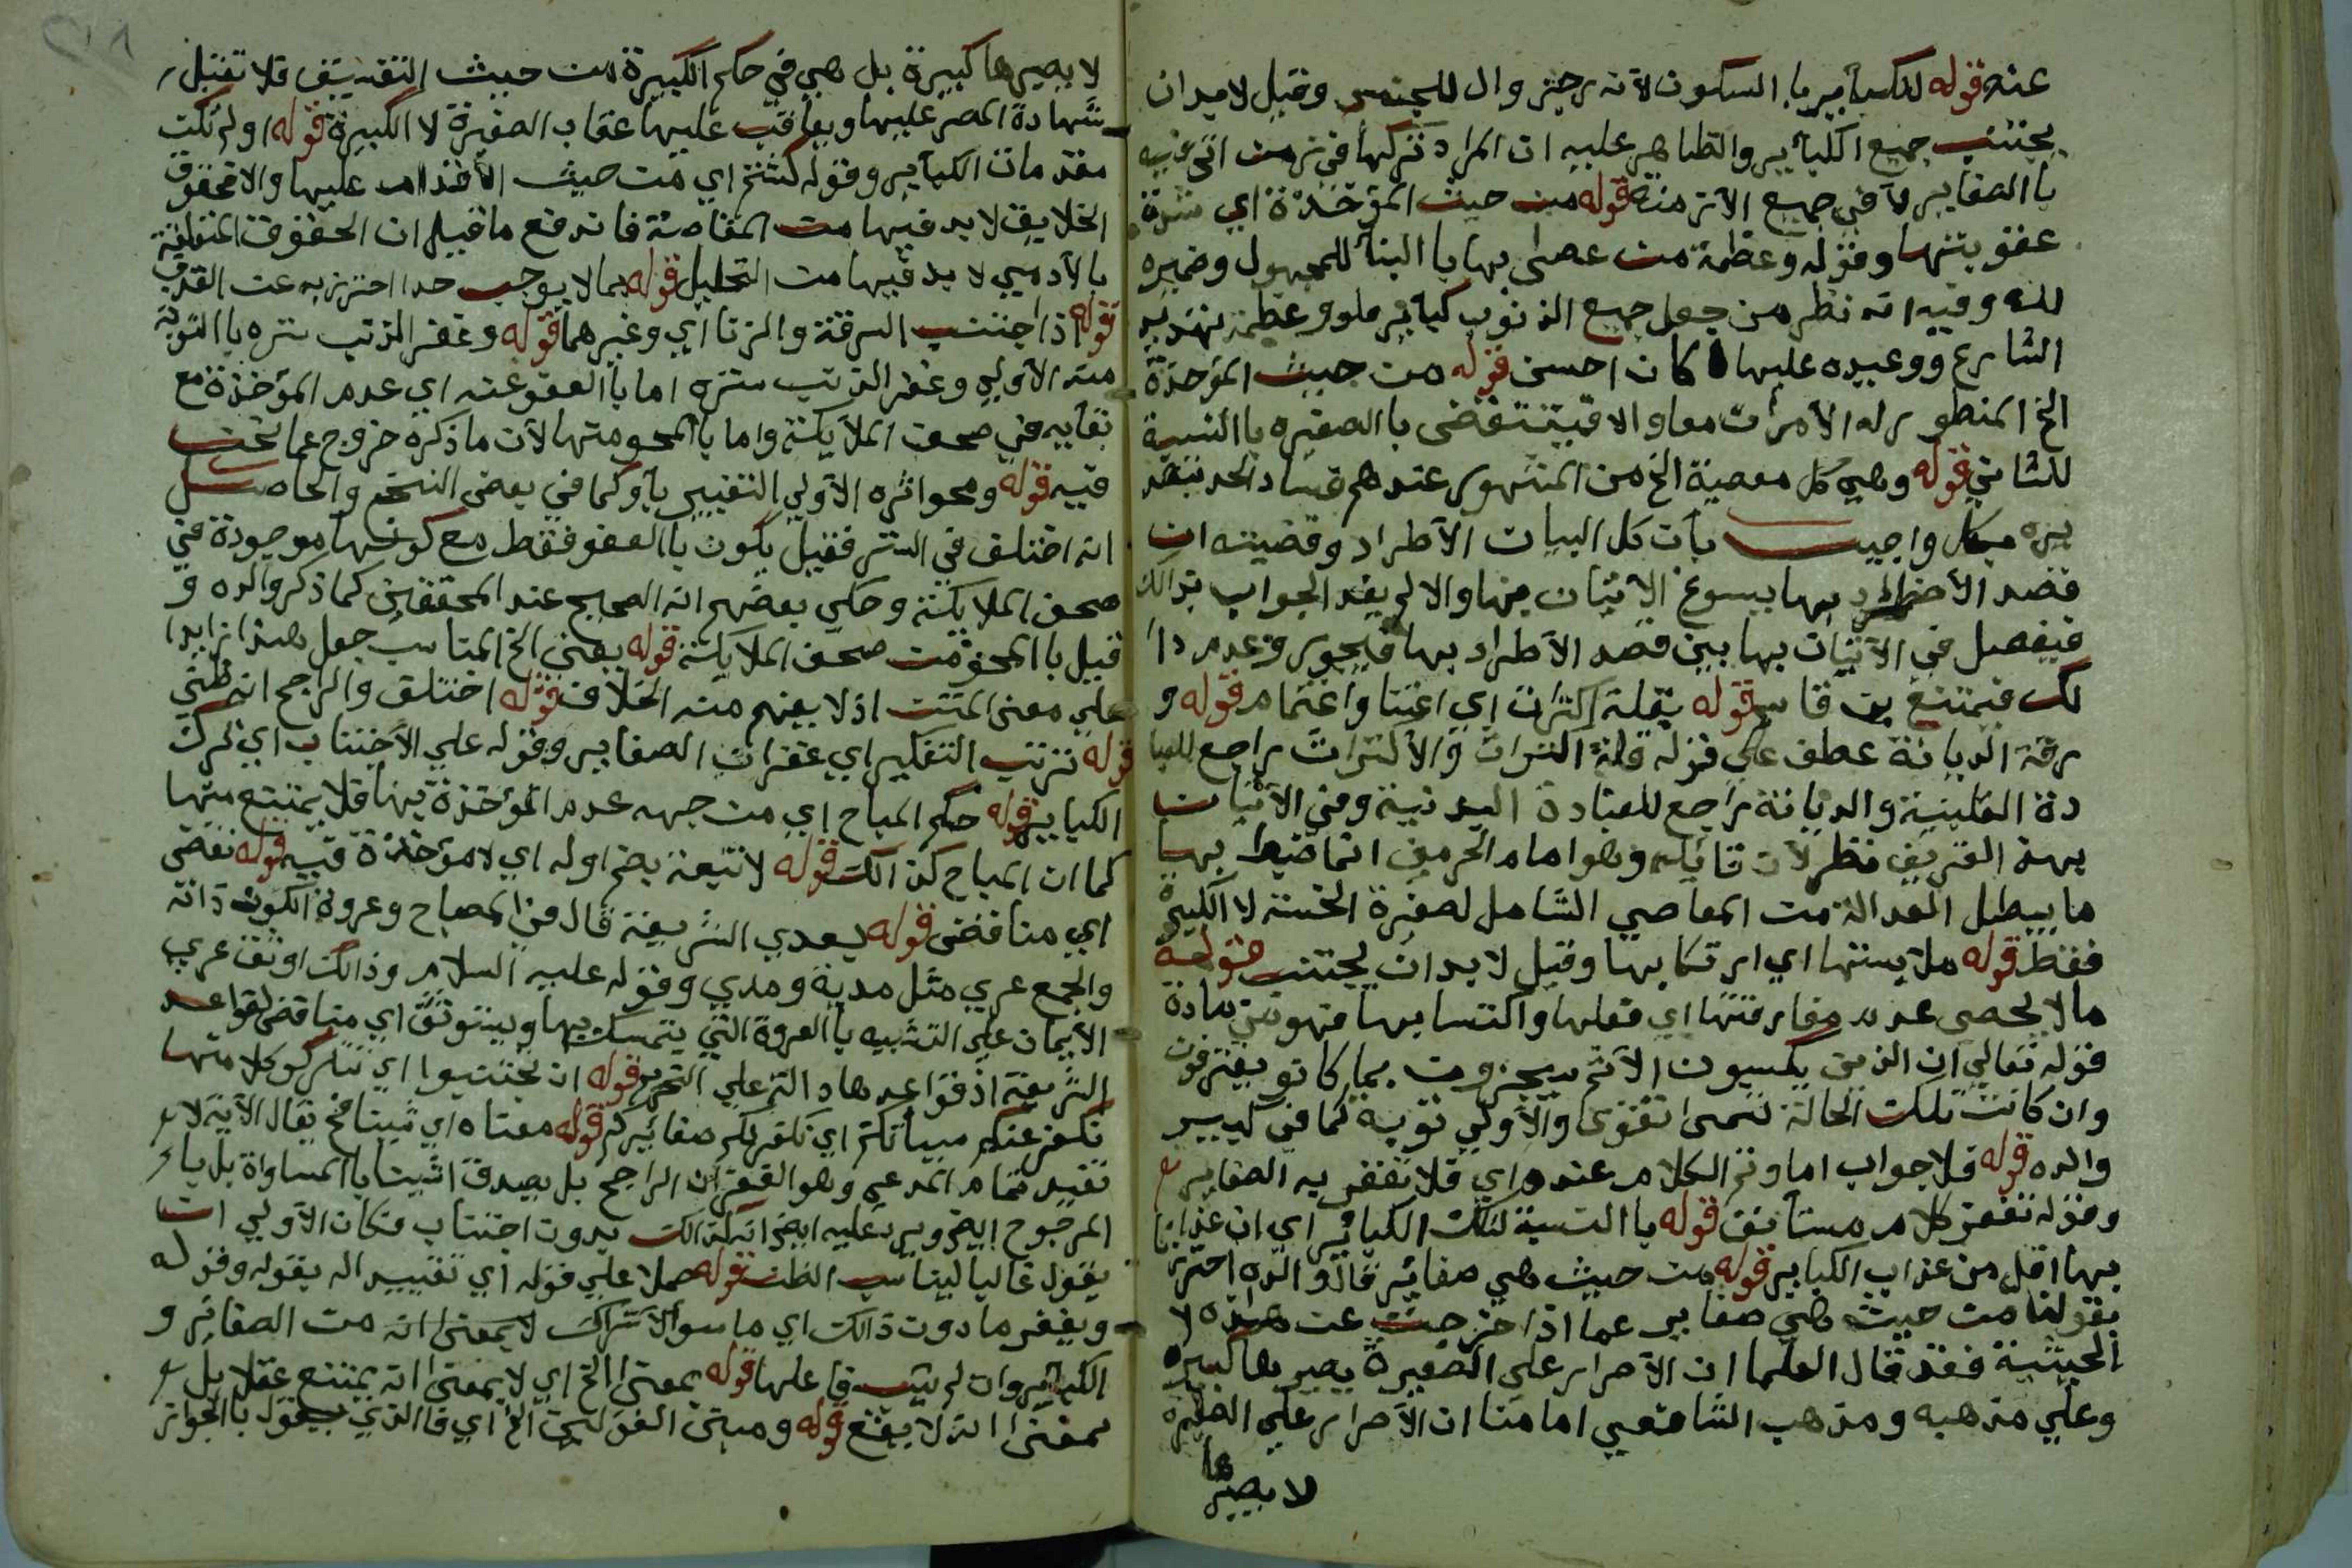 عنه قوله للكبآير بالسكون لانه رجز وال للجنس وقيل لابد ان
يجتنب جميع الكبآير والظاهر عليه ان المراد تركها في زمن اتي فيه
با الصغاير لآ في جميع الآزمنه قوله من حيث المؤخذة اي شدة
عقوبتها وقوله وعظمة من عصى بها با البنآ للمجهول وضميره
لله وفيه انه نظر من جعل جميع الذنوب كبآير ملو وعظمة تهديد
الشارع ووعيده عليها كان احسن قوله من حيث المؤخذة
الخ المنظور له الآمران معا والا فينتقض با الصغيره با النسبة
للثاني قوله وهي كل معصية الخ من المشهور عندهم فساد الحد بتصد
يره بكل واجيب بآن كل البيان الآطراد وقضيته ان
قصد الآ بها يسوغ الآتيان بها والا لم يفد الجواب بذالك
فيفصل في الآتيان بها بين قصد الآطراد بها فيجوز وعدم ذا
لك فيمتنع بن قاسم قوله بقلة اكتراث اي اعتنا واهتمام قوله و
رقة الديانة عطف على قوله قلة اكتراث والآكتراث راجع للعبا
دة القلبية والديانة راجع للعبادة البدنية وفي الآتيان
بهذا التعريف نظر لآن قائله وهو امام الحرمين انما ضبط بها
ما يبطل العدالة من المعاصي الشامل لصغيرة الخسة لا الكبيرة
فقط قوله ملابستها اي ارتكابها وقيل لا بد ان يجتنب قوله
مالا يحصى عدد مقارفتها اي فعلها واكتسابها فهو من مادة
قوله تعالي ان الذين يكسبون الآثم سيجزون بما كانو يقترفون
وان كانت تلك الحالة تسمى تقوى والآولي توبة كما في كبير
والده قوله فلا جواب اما وتم الكلام عنده اي فلا تغفر به الصغاير
وقوله تغفر كلام مستآنف قوله با النسبة لتلك الكبائر اي ان عذابها
بها اقل من عذاب الكباير قوله من حيث هي صغائر قال والده احترز
بقولنا من حيث هي صغاير عما اذا خرجت عن هذه لا
الحيثية فقد قال العلما ان الآصرار على الصغيرة يصيرها كبيره
وعلي مذهبه ومذهب الشافعي امامنا ان الآصرار علي الصغيرة
لا يصيرها
لا يصيرها كبيرة بل هي في حكم الكبيرة من حيث التفسيق فلا تقبل
شهادة المصر عليها ويعاقب عليها عقاب الصغيرة لا الكبيرة قوله اولم تكن
مقدمات الكبآير وقوله كشتم اي من حيث الآقدام عليها والا فحقوق
الخلايق لابد فيها من المقاصة فاندفع ما قيل ان الحقوق المتعلقة
بالآدمي لا بد فيها من التحليل قوله بما لا يوجب حدا احترز به عن القذف
قوله اذا اجتنب السرقة والزنا اي وغيرهما قوله وغفر الذنب ستره با التوبة
منه الآولي وغفر الذنب ستره اما با العفو عنه اي عدم المؤخذة مع
بقآيه في صحف الملآيكة واما با المحو منها لآن ما ذكره خروج عما نحن
فيه قوله ومحو اثره الآولي التعبير بآو كما في بعض النسخ والحاصل
انه اختلف في الستر فقيل يكون با العفو فقط مع كونها موجودة في
صحف الملايكة وحكي بعضهم انه الصحيح عند المحققين كما ذكر والده و
قيل با المحو من صحف الملايكة قوله بمعنى الخ المناسب جعل هذا زايدا
علي معنى المتن اذ لا يفهم منه الخلاف قوله اختلف والراجح انه ظني
قوله ترتب التكفير اي غفران الصغاير وقوله علي الآجتناب اي ترك
الكباير قوله حكم المباح اي من جهه عدم المؤخذة بها فلا يمتنع منها
كما ان المباح كذالك قوله لا تبعة بضم اوله اي لا مؤخذة فيه قوله نقض
اي مناقض قوله لعدي الشريعة قال في المصباح وعروة الكوز ذانه
والجمع عري مثل مدية ومدي وقوله عليه السلام وذالك اوثق عري
الآيمان علي التشبيه با العروة التي يتمسك بها ويستوثق اي مناقض لقواعد
الشريعة اذ قواعدها دالة علي التحريم قوله ان تجتنبوا اي تتركو كلا منها
نكفر عنكم سيآتكم اي نكفر لكم صغائركم قوله معناه اي شيئا فخ يقال الآية لا
تفيد تمام المدعي وهو الغفران الراجح بل يصدق اشيئا با المساواة بل با
المرجوح ايض ويرد عليه ايض انه كذالك بدون اجتناب فكان الآولي ان
يقول غالبا ليناسب الظن قوله حملا علي قوله اي تقييد اله بقوله وقوله
ويغفر مادون ذالك اي ما سوا الآشراك لا بمعنى انه من الصغائر و
الكبآير وان لم يتب فاعلها قوله بمعنى الخ اي لا بمعنى انه يمتنع عقلا بل
بمعنى انه لا يقع قوله ومبنى القولين الخ اي فا الذي يقول با الجواز